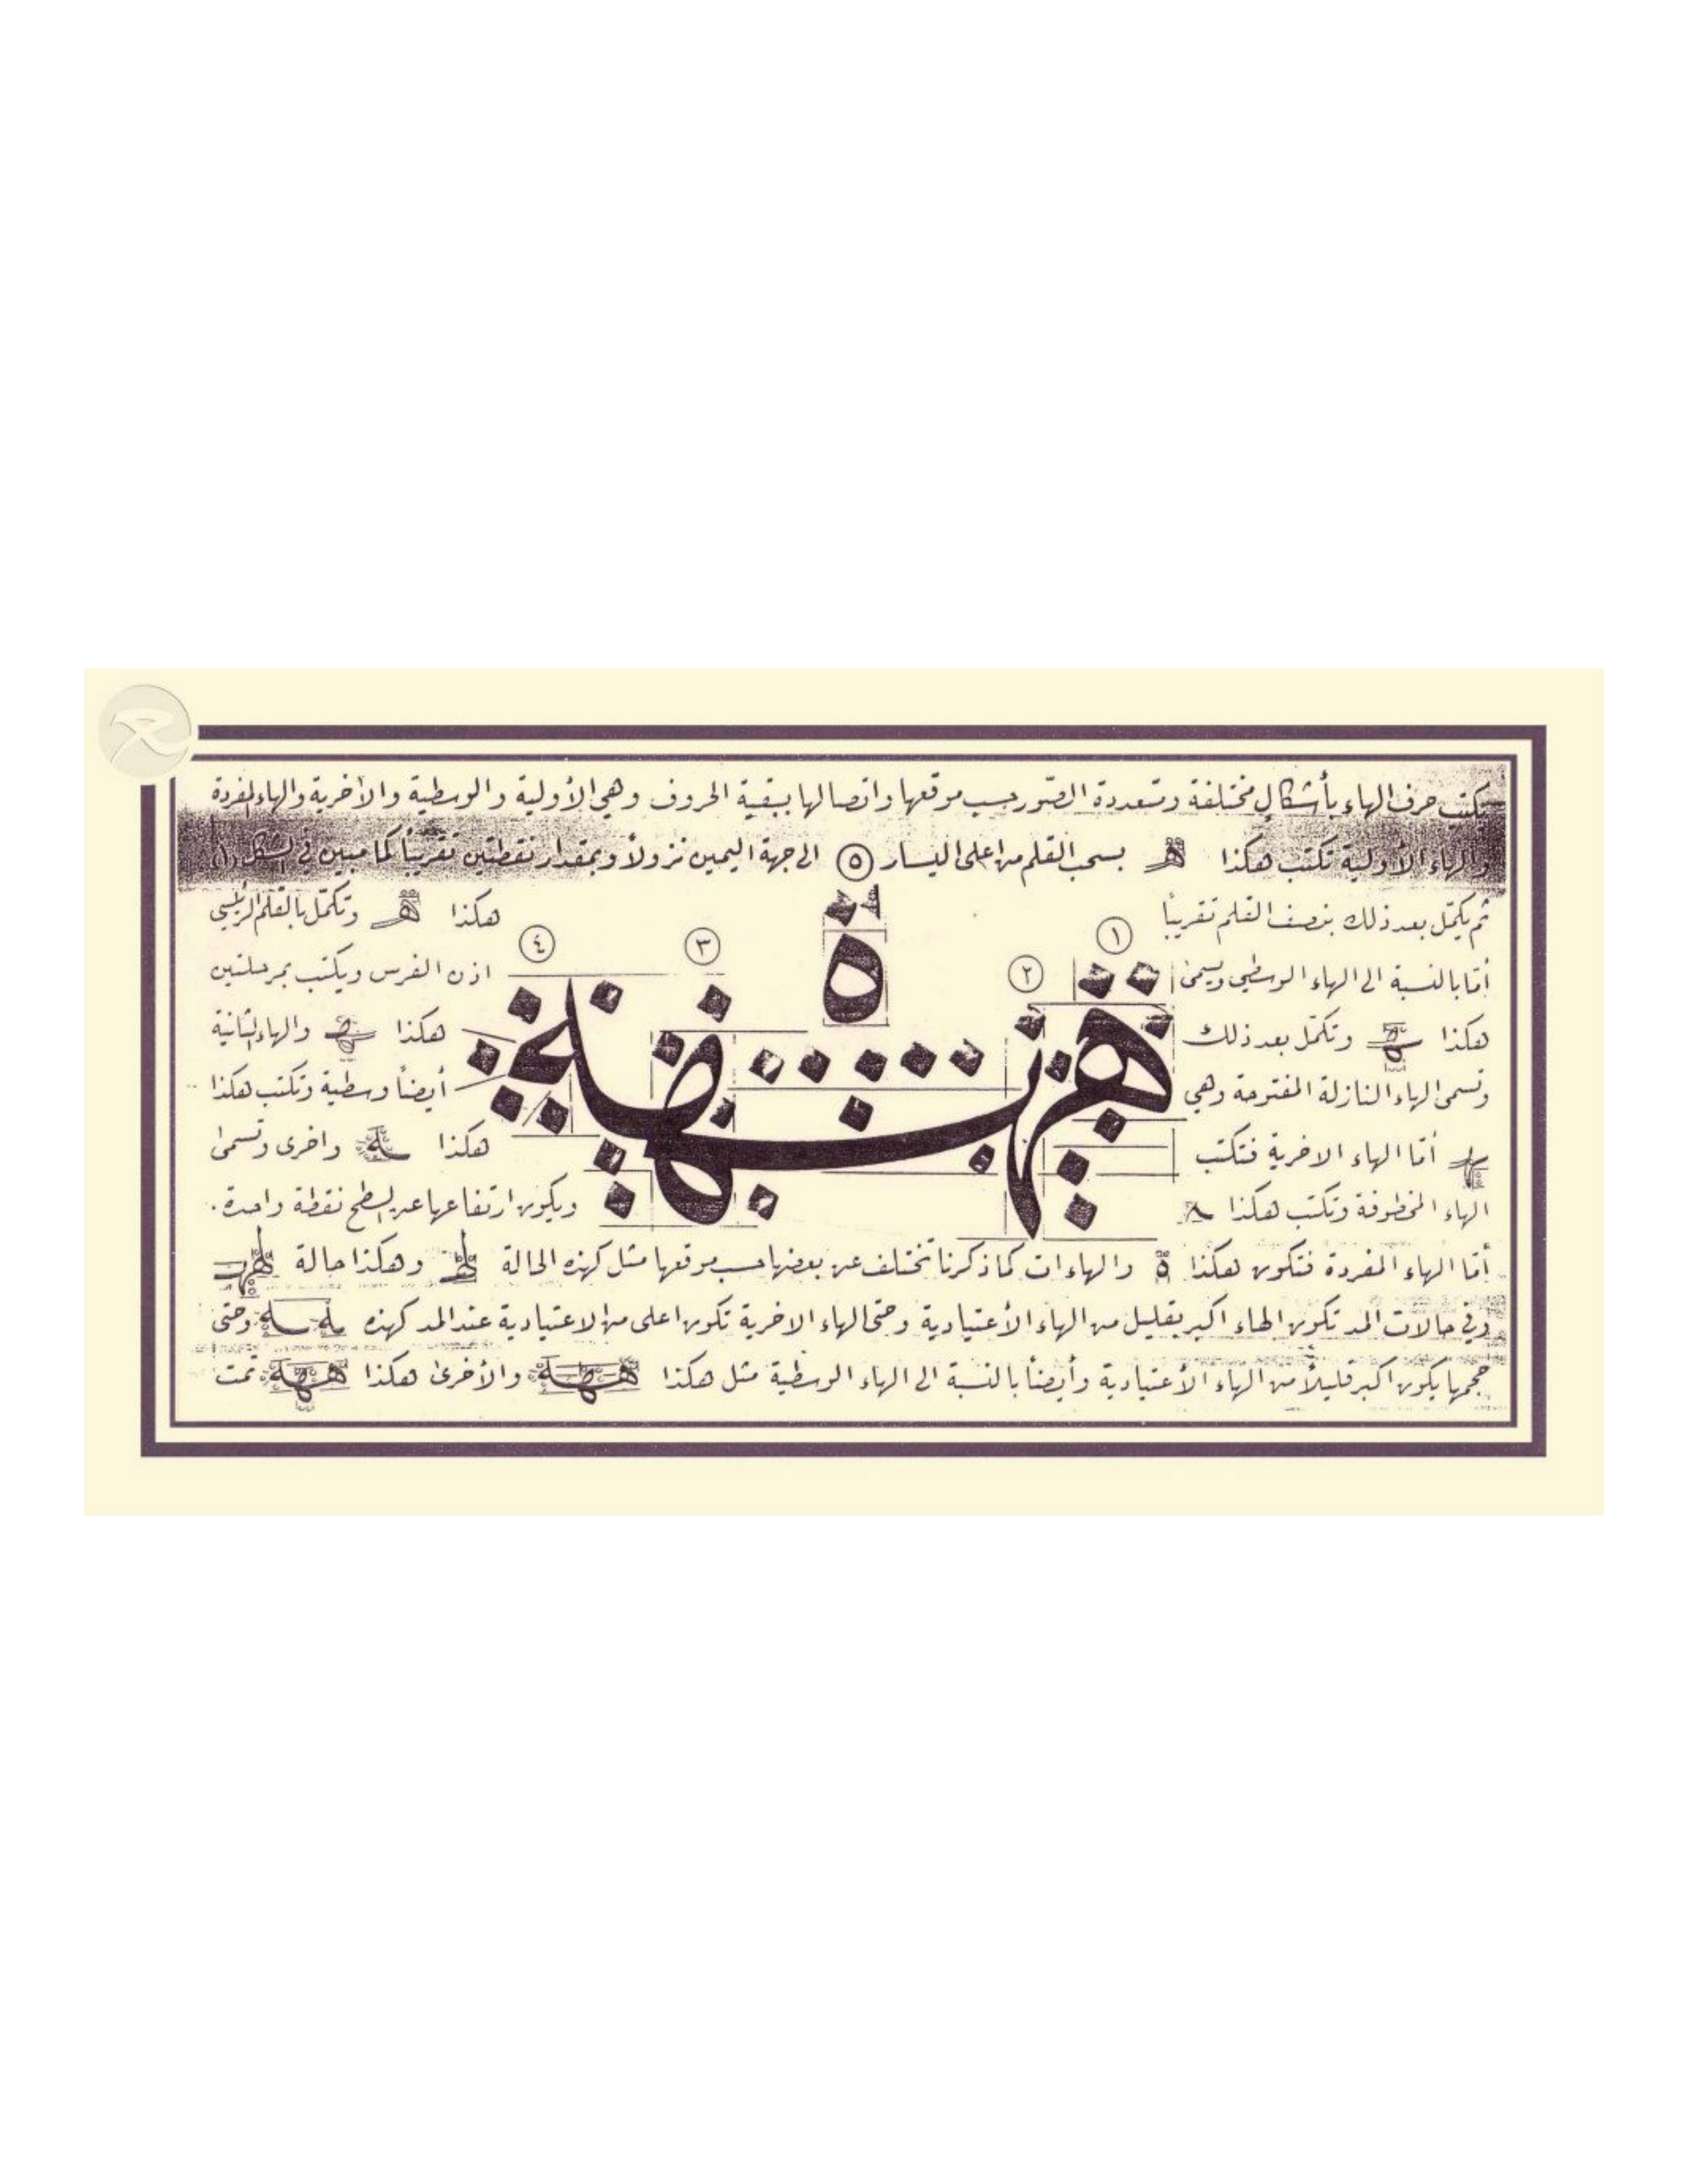 يكتب حرف الهاء بأشكالٍ مختلفة ومتعددة الصّور حسب موقعها واتصالها ببقية الحروف وهي الأولية والوسطية والأخرية والهاء المفردة
والهاء الأولية تكتب هكذا هـ بسحب القلم من اعلى اليسار ٥ الى جهة اليمين نزولاً وبمقدار نقطتين تقريباً كما مبين في الشكل (١)
ثم يكمّل بعد ذلك بنصف القلم تقريباً هكذا هـ وتكمّل بالقلم الرئيسي
١ ٢ ٣ ٤
أمّا بالنسبة الى الهاء الوسطي ويسمى اذن الفرس ويكتب بمرحلتين
هكذا ـهـ وتكمّل بعد ذلك هكذا ـهـ والهاء الثانية
ه
وتسمى الهاء النازلة المفتوحة وهي أيضاً وسطية وتكتب هكذا
ـهـ أمّا الهاء الاخرية فتكتب هكذا ـه واخرى وتسمى
الهاء المخطوفة وتكتب هكذا ـه ويكون ارتفاعها عن السطح نقطة واحدة .
أمّا الهاء المفردة فتكون هكذا ه والهاءات كما ذكرنا تختلف عن بعضها حسب موقعها مثل كهذه الحالة وهكذا حالة
وفي حالات المد تكون الهاء اكبر بقليل من الهاء الأعتيادية وحتى الهاء الاخرية تكون اعلى من الاعتيادية عند المد كهذه وحتى
حجمها يكون اكبر قليلاً من الهاء الأعتيادية وأيضاً بالنسبة الى الهاء الوسطية مثل هكذا ههه والأخرى هكذا ههه تمت